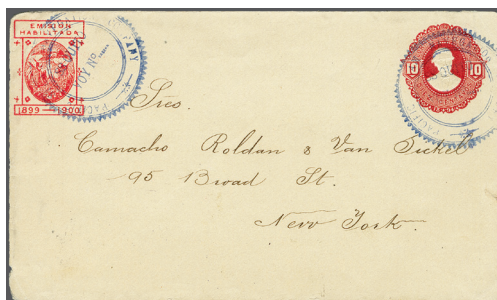 EMISION
HABILITADA
1899 1900
VOY No.
PACI
10 10
PACIFIC
Sres.
Camacho Roldan & Van Sickel
95 Broad St.
New York.